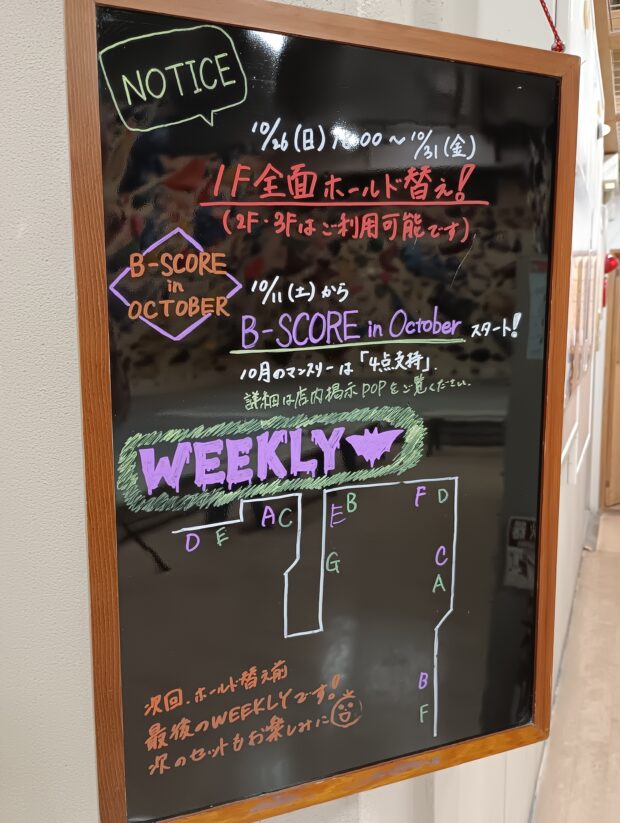 NOTICE
10/26(日) 〜10/31(金)
1F全面ホールド替え!
(2F・3Fはご利用可能です)
B-SCORE
in
OCTOBER
10/11(土)から
B-SCORE in October スタート!
10月のマンスリーは「4点支持」.
詳細は店内掲示POPをご覧ください.
WEEKLY
D E A C E B F D
G C
A
B
F
次回.ホールド替え前
最後のWEEKLYです!
次のセットもお楽しみに